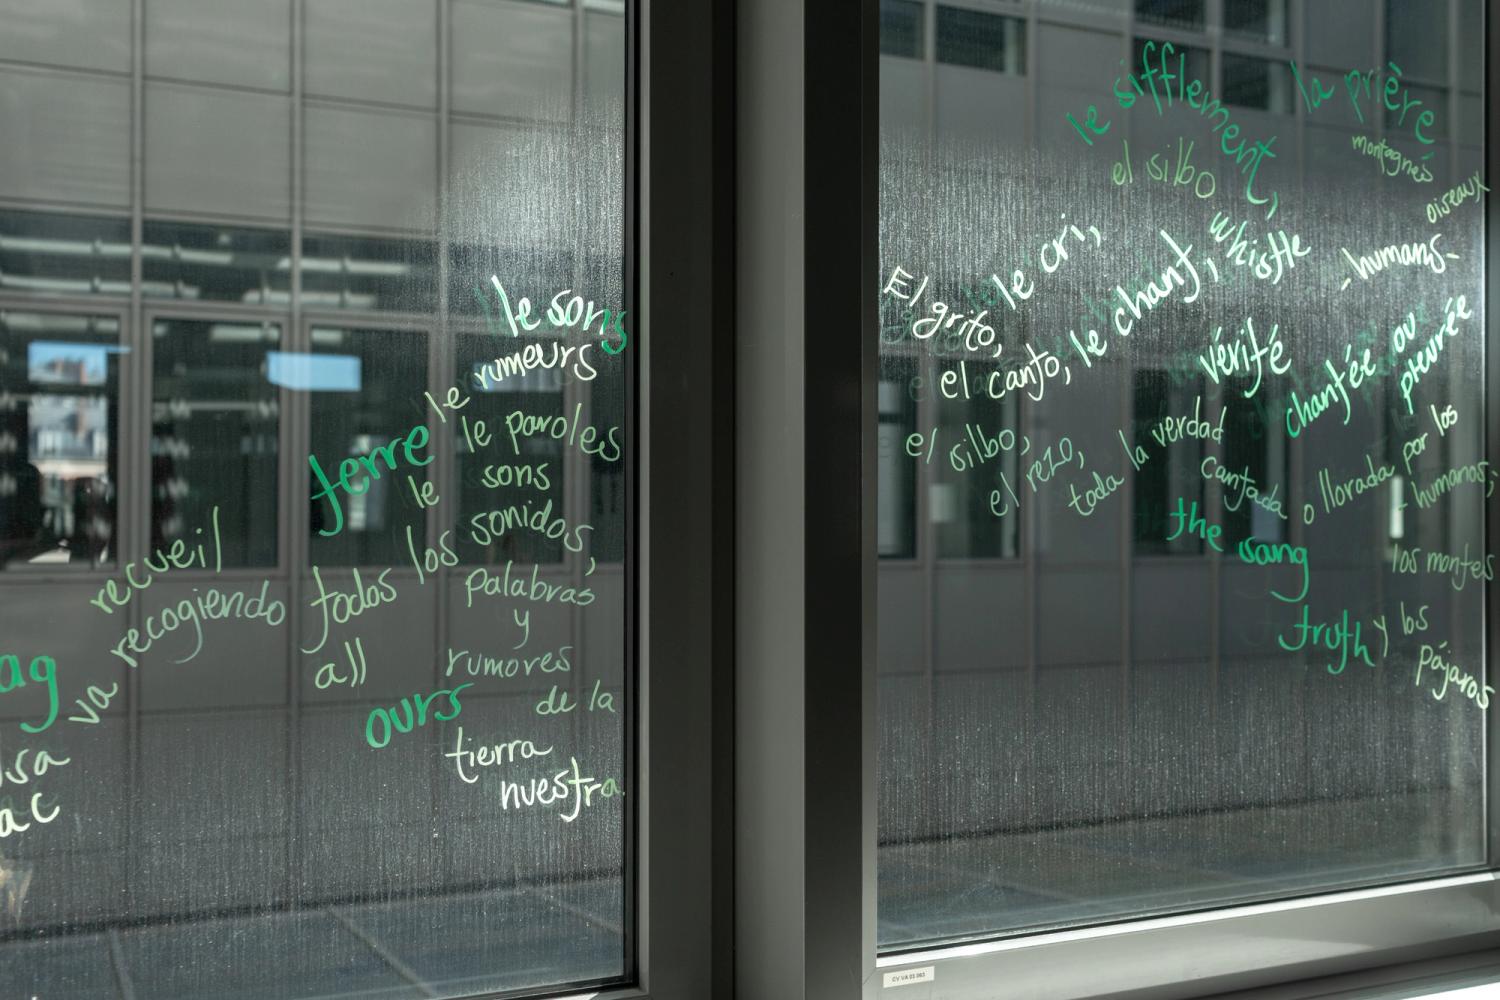 le sons
rumeurs
le
terre
le paroles
le sons
recueil
va recogiendo
todos los sonidos,
palabras
y
all
rumores
ag
ours
de la
tierra
nuestra.
sa
ac
le sifflement,
la prière
montagnes
el silbo
oiseaux
whistle
- humans -
El grito, le cri,
el canto, le chant,
vérité
chantée ou
pleurée
el silbo,
el rezo,
toda la verdad
cantada
o llorada por los
- humanos;
the sang
los montes
truth
y los
pájaros
CV VA 03 063